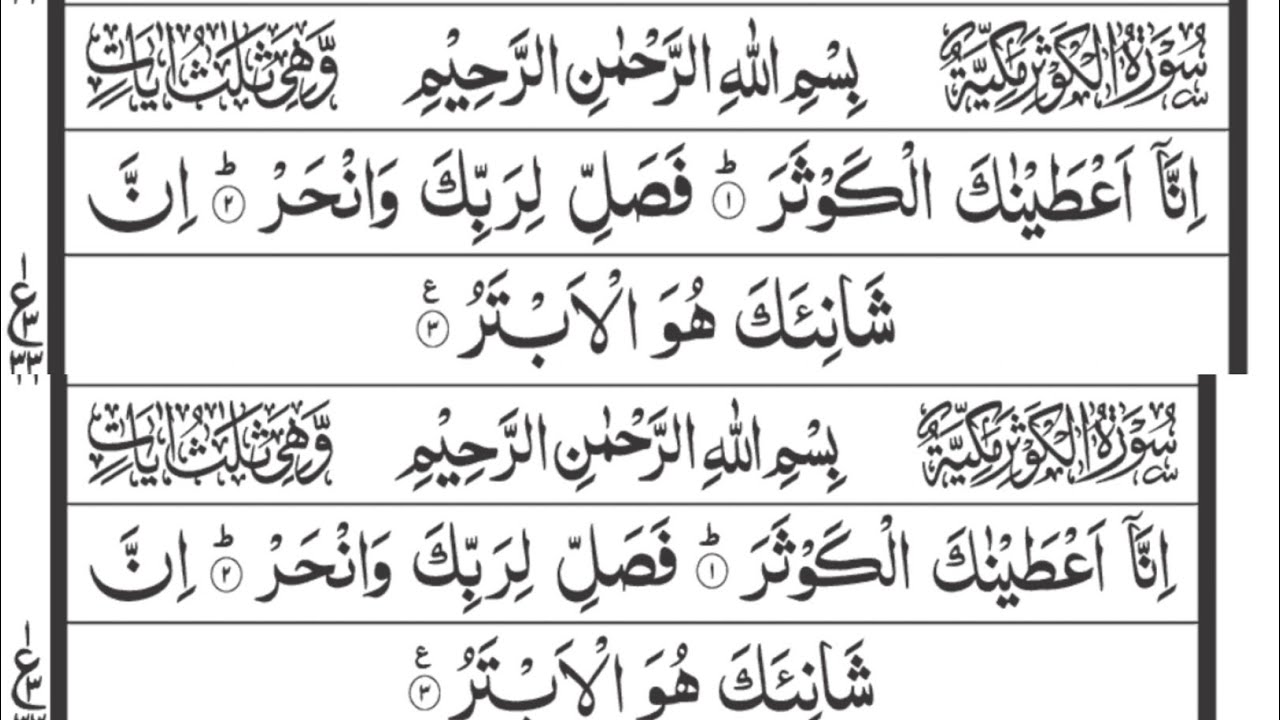 سُوْرَةُ الْكَوْثَرِ مَكِّيَّةٌ بِسْمِ اللّٰهِ الرَّحْمٰنِ الرَّحِيْمِ وَّهِيَ ثَلٰثُ اٰيَاتٍ
اِنَّاۤ اَعْطَيْنٰكَ الْكَوْثَرَ ؕ ۱ فَصَلِّ لِرَبِّكَ وَانْحَرْ ؕ ۲ اِنَّ
شَانِئَكَ هُوَ الْاَبْتَرُ ع ۳
۱ ع ۳ ۳۳
سُوْرَةُ الْكَوْثَرِ مَكِّيَّةٌ بِسْمِ اللّٰهِ الرَّحْمٰنِ الرَّحِيْمِ وَّهِيَ ثَلٰثُ اٰيَاتٍ
اِنَّاۤ اَعْطَيْنٰكَ الْكَوْثَرَ ؕ ۱ فَصَلِّ لِرَبِّكَ وَانْحَرْ ؕ ۲ اِنَّ
شَانِئَكَ هُوَ الْاَبْتَرُ ع ۳
۱ ع ۳